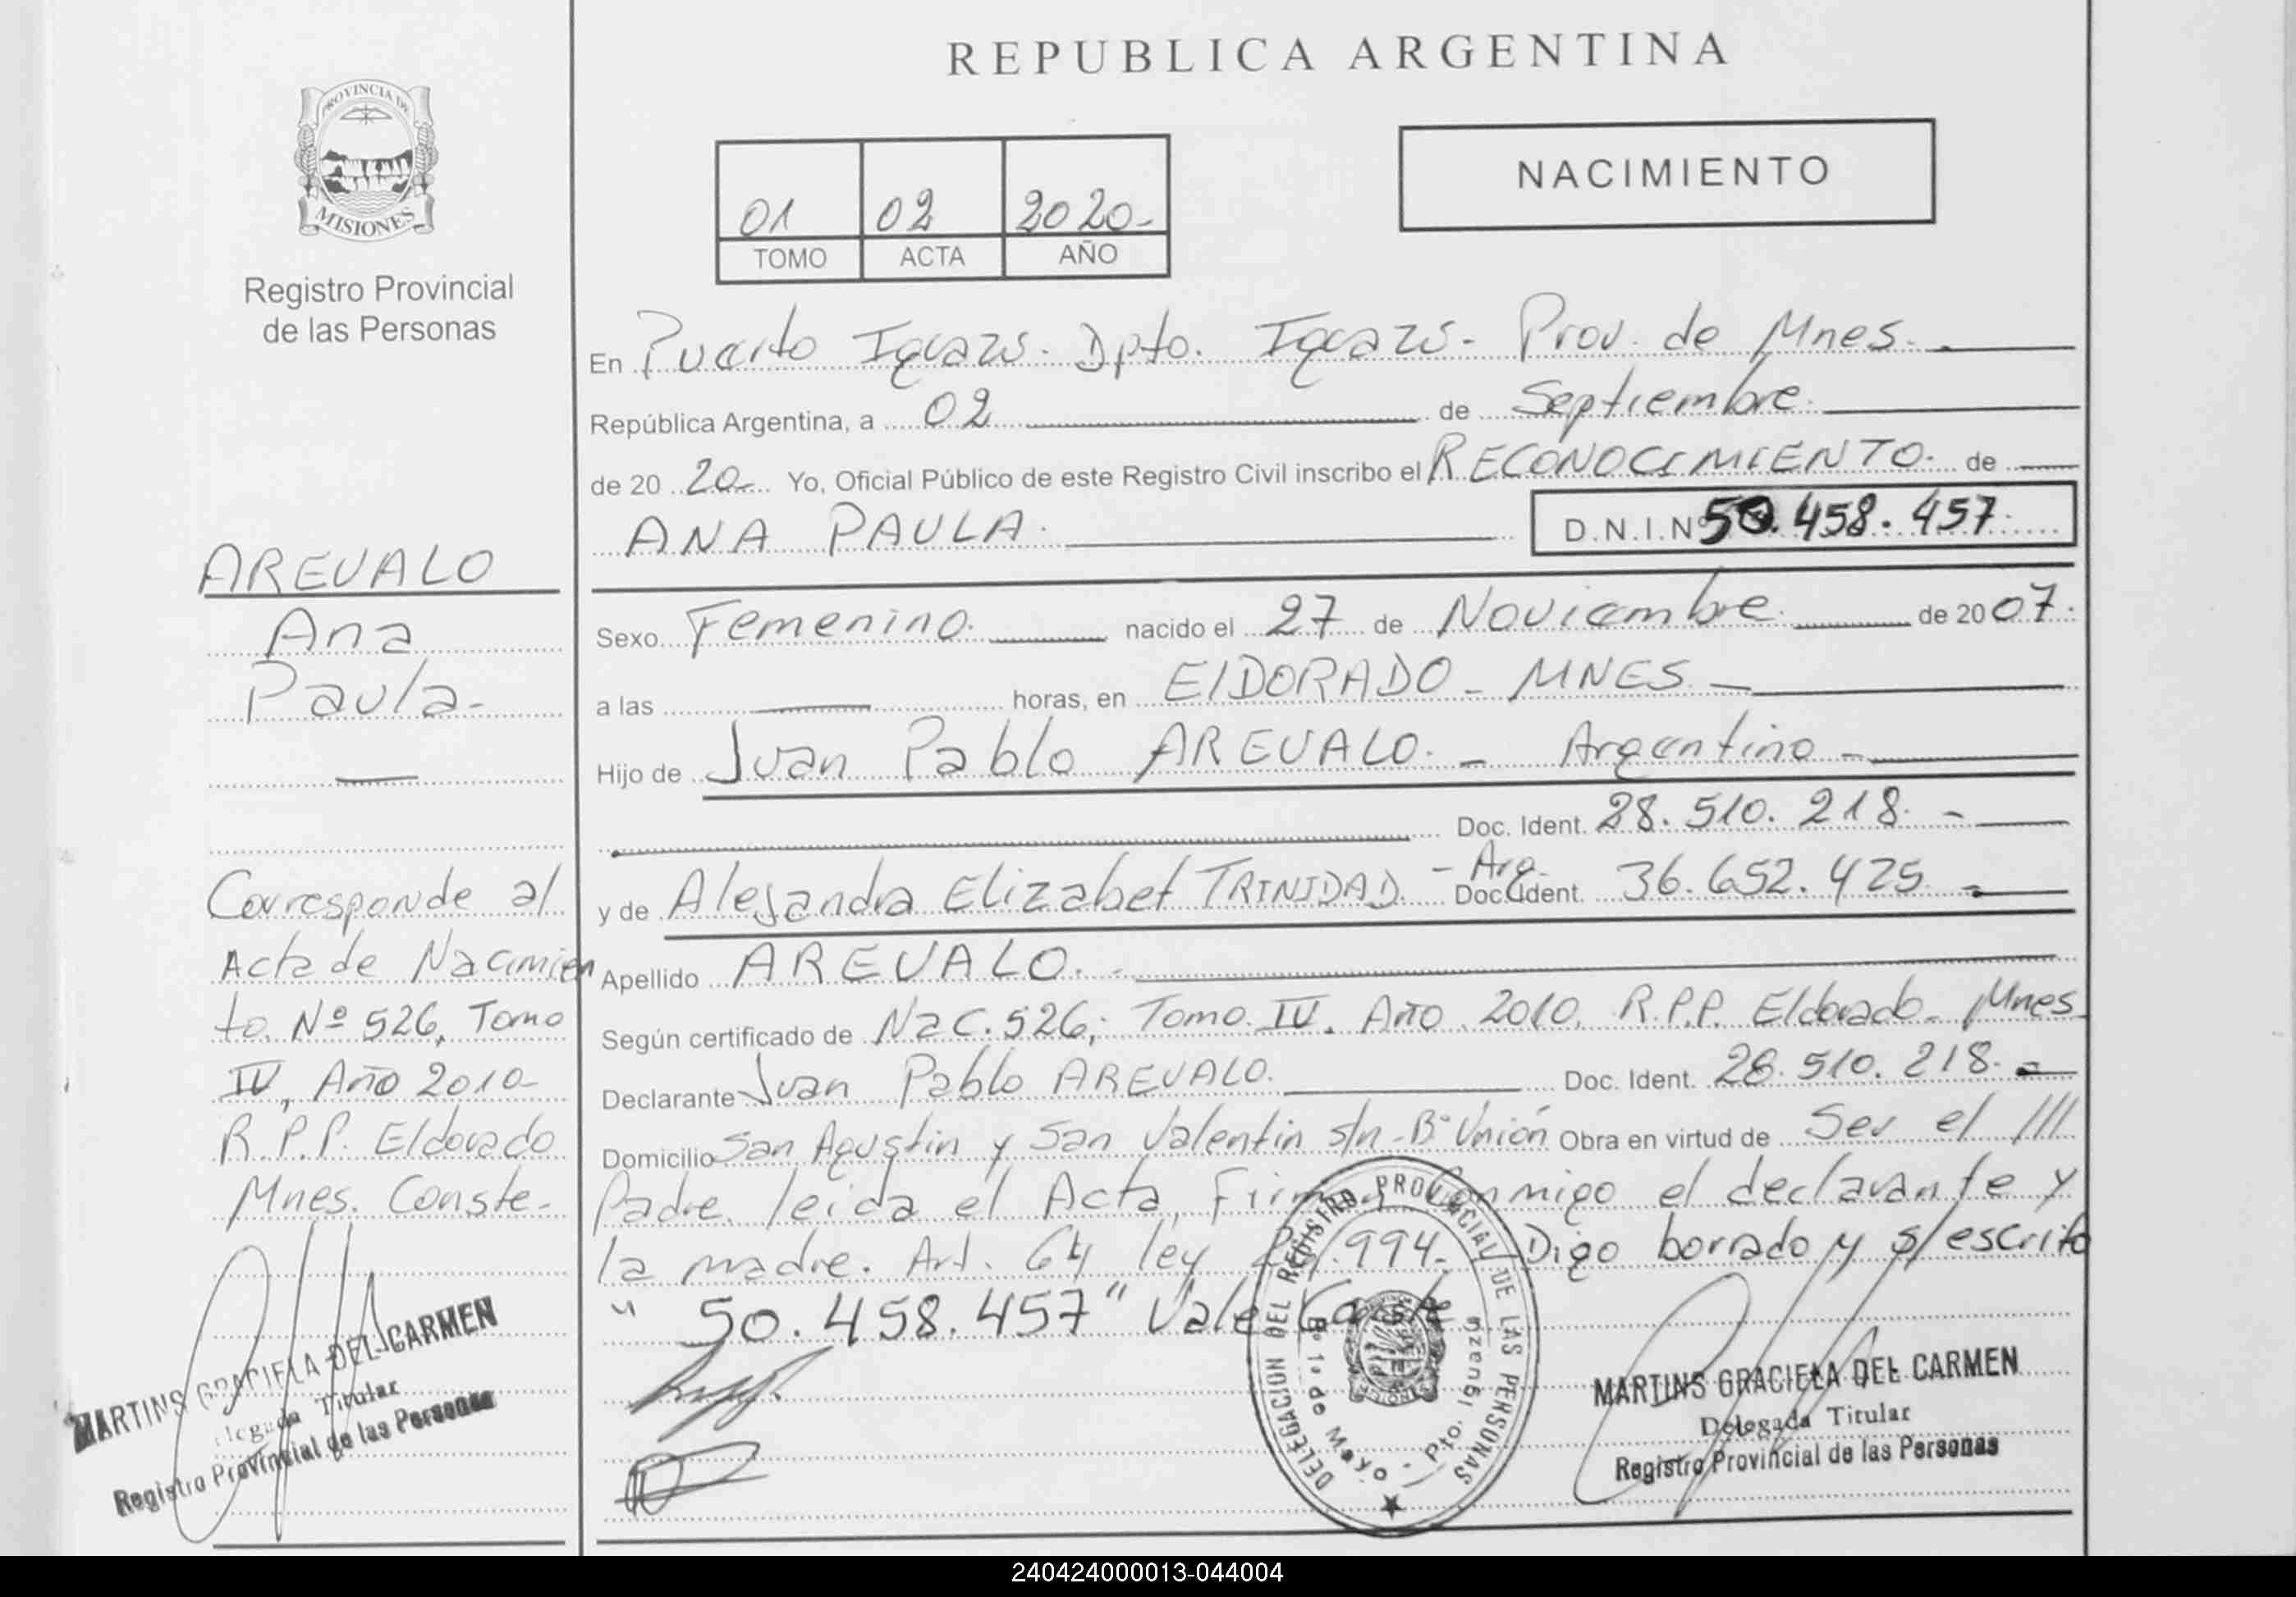 REPUBLICA ARGENTINA
PROVINCIA DE
MISIONES
Registro Provincial
de las Personas
NACIMIENTO
01 02 2020-
TOMO ACTA AÑO
En Puerto Iguazú. Dpto. Iguazú - Prov. de Mnes.
República Argentina, a 02 de Septiembre.
de 20 20 Yo, Oficial Público de este Registro Civil inscribo el RECONOCIMIENTO. de
ANA PAULA. D.N.I.Nº 50.458.457
Sexo Femenino. nacido el 27 de Noviembre de 20 07.
a las horas, en ElDORADO - MNES -
Hijo de Juan Pablo AREVALO. - Argentino -
Doc. Ident. 28.510.218. -
y de Alejandra Elizabet TRINIDAD. - Arg. Doc. Ident. 36.652.425 -
Apellido AREVALO.
Según certificado de Nac. 526; Tomo IV. Año 2010. R.P.P. Eldorado - Mnes
Declarante Juan Pablo AREVALO. Doc. Ident. 28.510.218. -
Domicilio San Agustin y San Valentin s/n - Bº Unión Obra en virtud de Ser el ///
Padre leida el Acta, Firman Conmigo el declarante y
la madre. Art. 64 ley 26.994. Digo borrado y s/escrito
" 50.458.457" Vale Conste
AREVALO
Ana
Paula-
Corresponde al
Acta de Nacimien
to. Nº 526, Tomo
IV, Año 2010-
R.P.P. Eldorado
Mnes. Conste-
MARTINS GRACIELA DEL CARMEN
Delegada Titular
Registro Provincial de las Personas
DELEGACION DEL REGISTRO PROVINCIAL DE LAS PERSONAS
Bº 1º de Mayo - Pto. Iguazú
MARTINS GRACIELA DEL CARMEN
Delegada Titular
Registro Provincial de las Personas
240424000013-044004